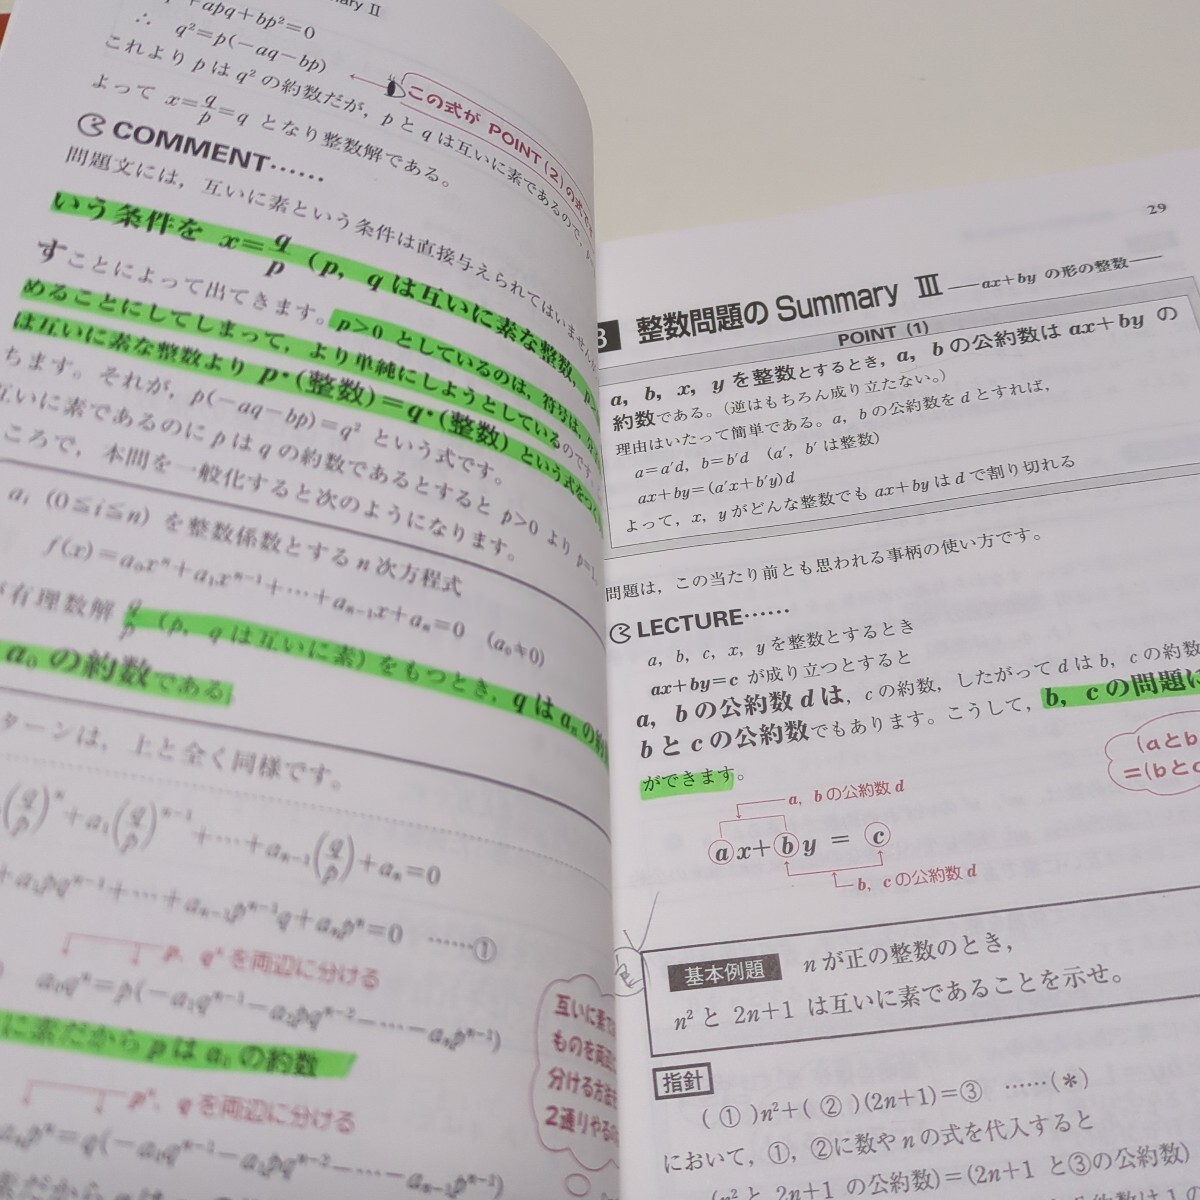 +apq+bp²=0
∴ q²=p(-aq-bp)
これより p は q² の約数だが, p と q は互いに素であるので,
この式が POINT (2) の式です
よって x=q/p=q となり整数解である。
COMMENT……
問題文には, 互いに素という条件は直接与えられてはいません
いう条件を x=q/p (p, q は互いに素な整数,
すことによって出てきます。p>0 としているのは, 符号は,
めることにしてしまって, より単純にしようとしているのです。
は互いに素な整数より p・(整数)=q・(整数) という式を
ちます。それが, p(-aq-bp)=q² という式です。
互いに素であるのに p は q の約数であるとすると p>0 より p=1
ころで, 本問を一般化すると次のようになります。
aᵢ (0≦i≦n) を整数係数とする n 次方程式
f(x)=a₀xⁿ+a₁xⁿ⁻¹+…+aₙ₋₁x+aₙ=0 (a₀≠0)
有理数解 q/p (p, q は互いに素) をもつとき, q は aₙ の約
a₀ の約数である。
ターンは, 上と全く同様です。
(q/p)ⁿ+a₁(q/p)ⁿ⁻¹+…+aₙ₋₁(q/p)+aₙ=0
+a₁pqⁿ⁻¹+…+aₙ₋₁pⁿ⁻¹q+aₙpⁿ=0 ……①
p, qⁿ を両辺に分ける
a₀qⁿ=p(-a₁qⁿ⁻¹-a₂pqⁿ⁻²-…-aₙpⁿ⁻¹)
に素だから p は a₀ の約数
pⁿ, q を両辺に分ける
aₙpⁿ=q(-a₀qⁿ⁻¹-a₁pqⁿ⁻²-…-
互いに素
ものを両辺
分ける方法
2通りやるの
29
3 整数問題の Summary Ⅲ ―ax+by の形の整数―
POINT (1)
a, b, x, y を整数とするとき, a, b の公約数は ax+by の
約数である。(逆はもちろん成り立たない。)
理由はいたって簡単である。a, b の公約数を d とすれば,
a=a′d, b=b′d (a′, b′ は整数)
ax+by=(a′x+b′y)d
よって, x, y がどんな整数でも ax+by は d で割り切れる
問題は, この当たり前とも思われる事柄の使い方です。
LECTURE……
a, b, c, x, y を整数とするとき
ax+by=c が成り立つとすると
a, b の公約数 d は, c の約数, したがって d は b, c の約数
b と c の公約数でもあります。こうして, b, c の問題に
ができます。
(a と b
=(b と c
a, b の公約数 d
ax+by = c
b, c の公約数 d
基本例題 n が正の整数のとき,
n² と 2n+1 は互いに素であることを示せ。
指針
( ① )n²+( ② )(2n+1)=③ ……(*)
において, ①, ②に数や n の式を代入すると
(n² と 2n+1 の公約数)=(2n+1 と③の公約数)